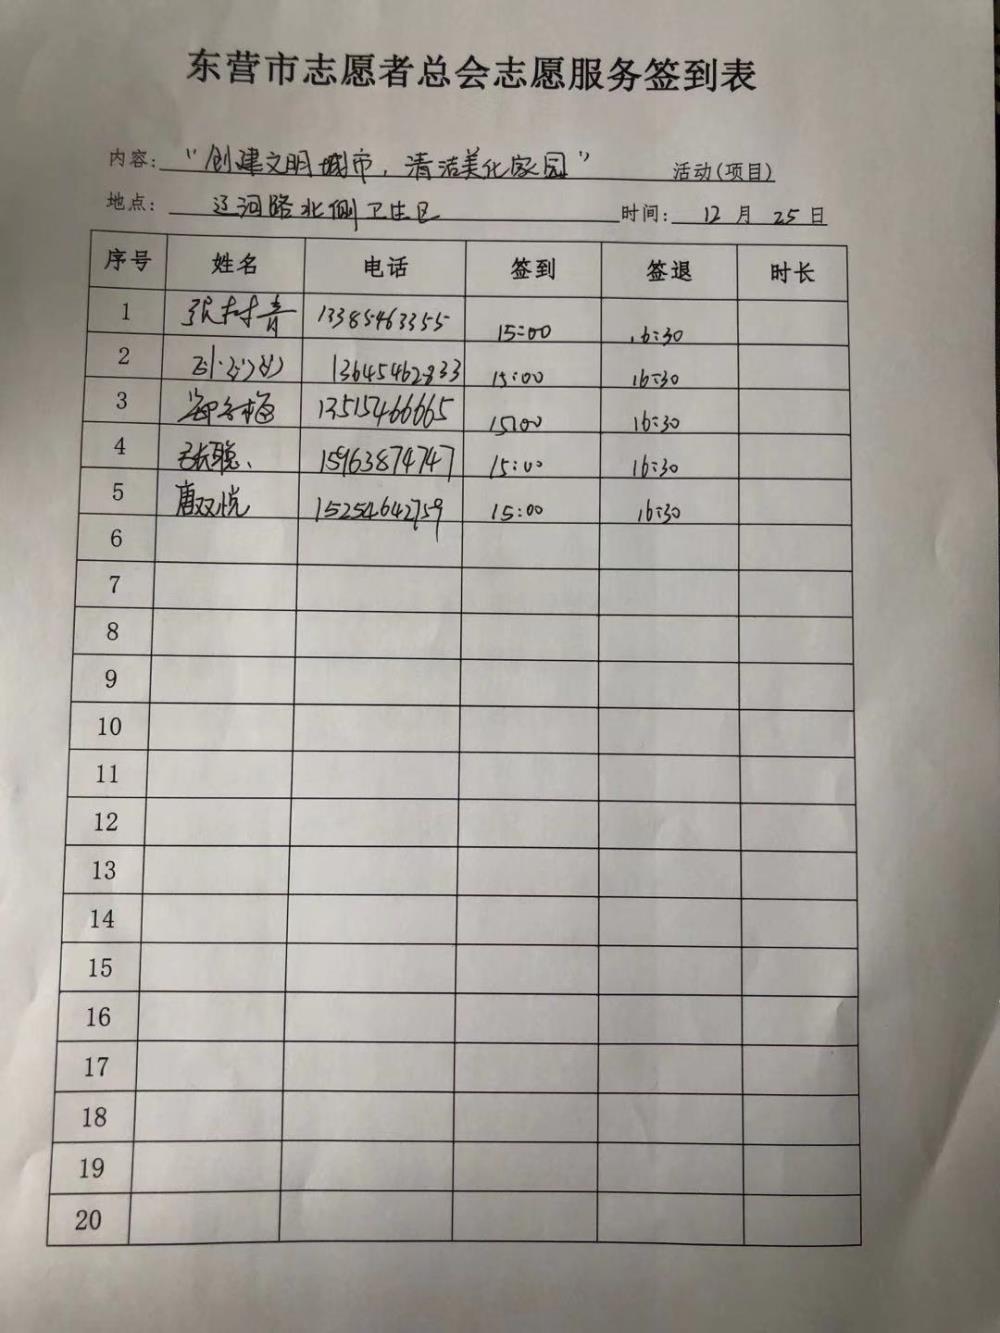 东营市志愿者总会志愿服务签到表
内容: "创建文明城市，清洁美化家园" 活动(项目)
地点: 辽河路北侧卫生区 时间: 12月25日
序号 姓名 电话 签到 签退 时长
1 张村青 13385463355 15:00 16:30
2 13645462833 15:00 16:30
3 13515466665 15:00 16:30
4 张聪、 15963874747 15:00 16:30
5 唐双悦 15254642759 15:00 16:30
6
7
8
9
10
11
12
13
14
15
16
17
18
19
20